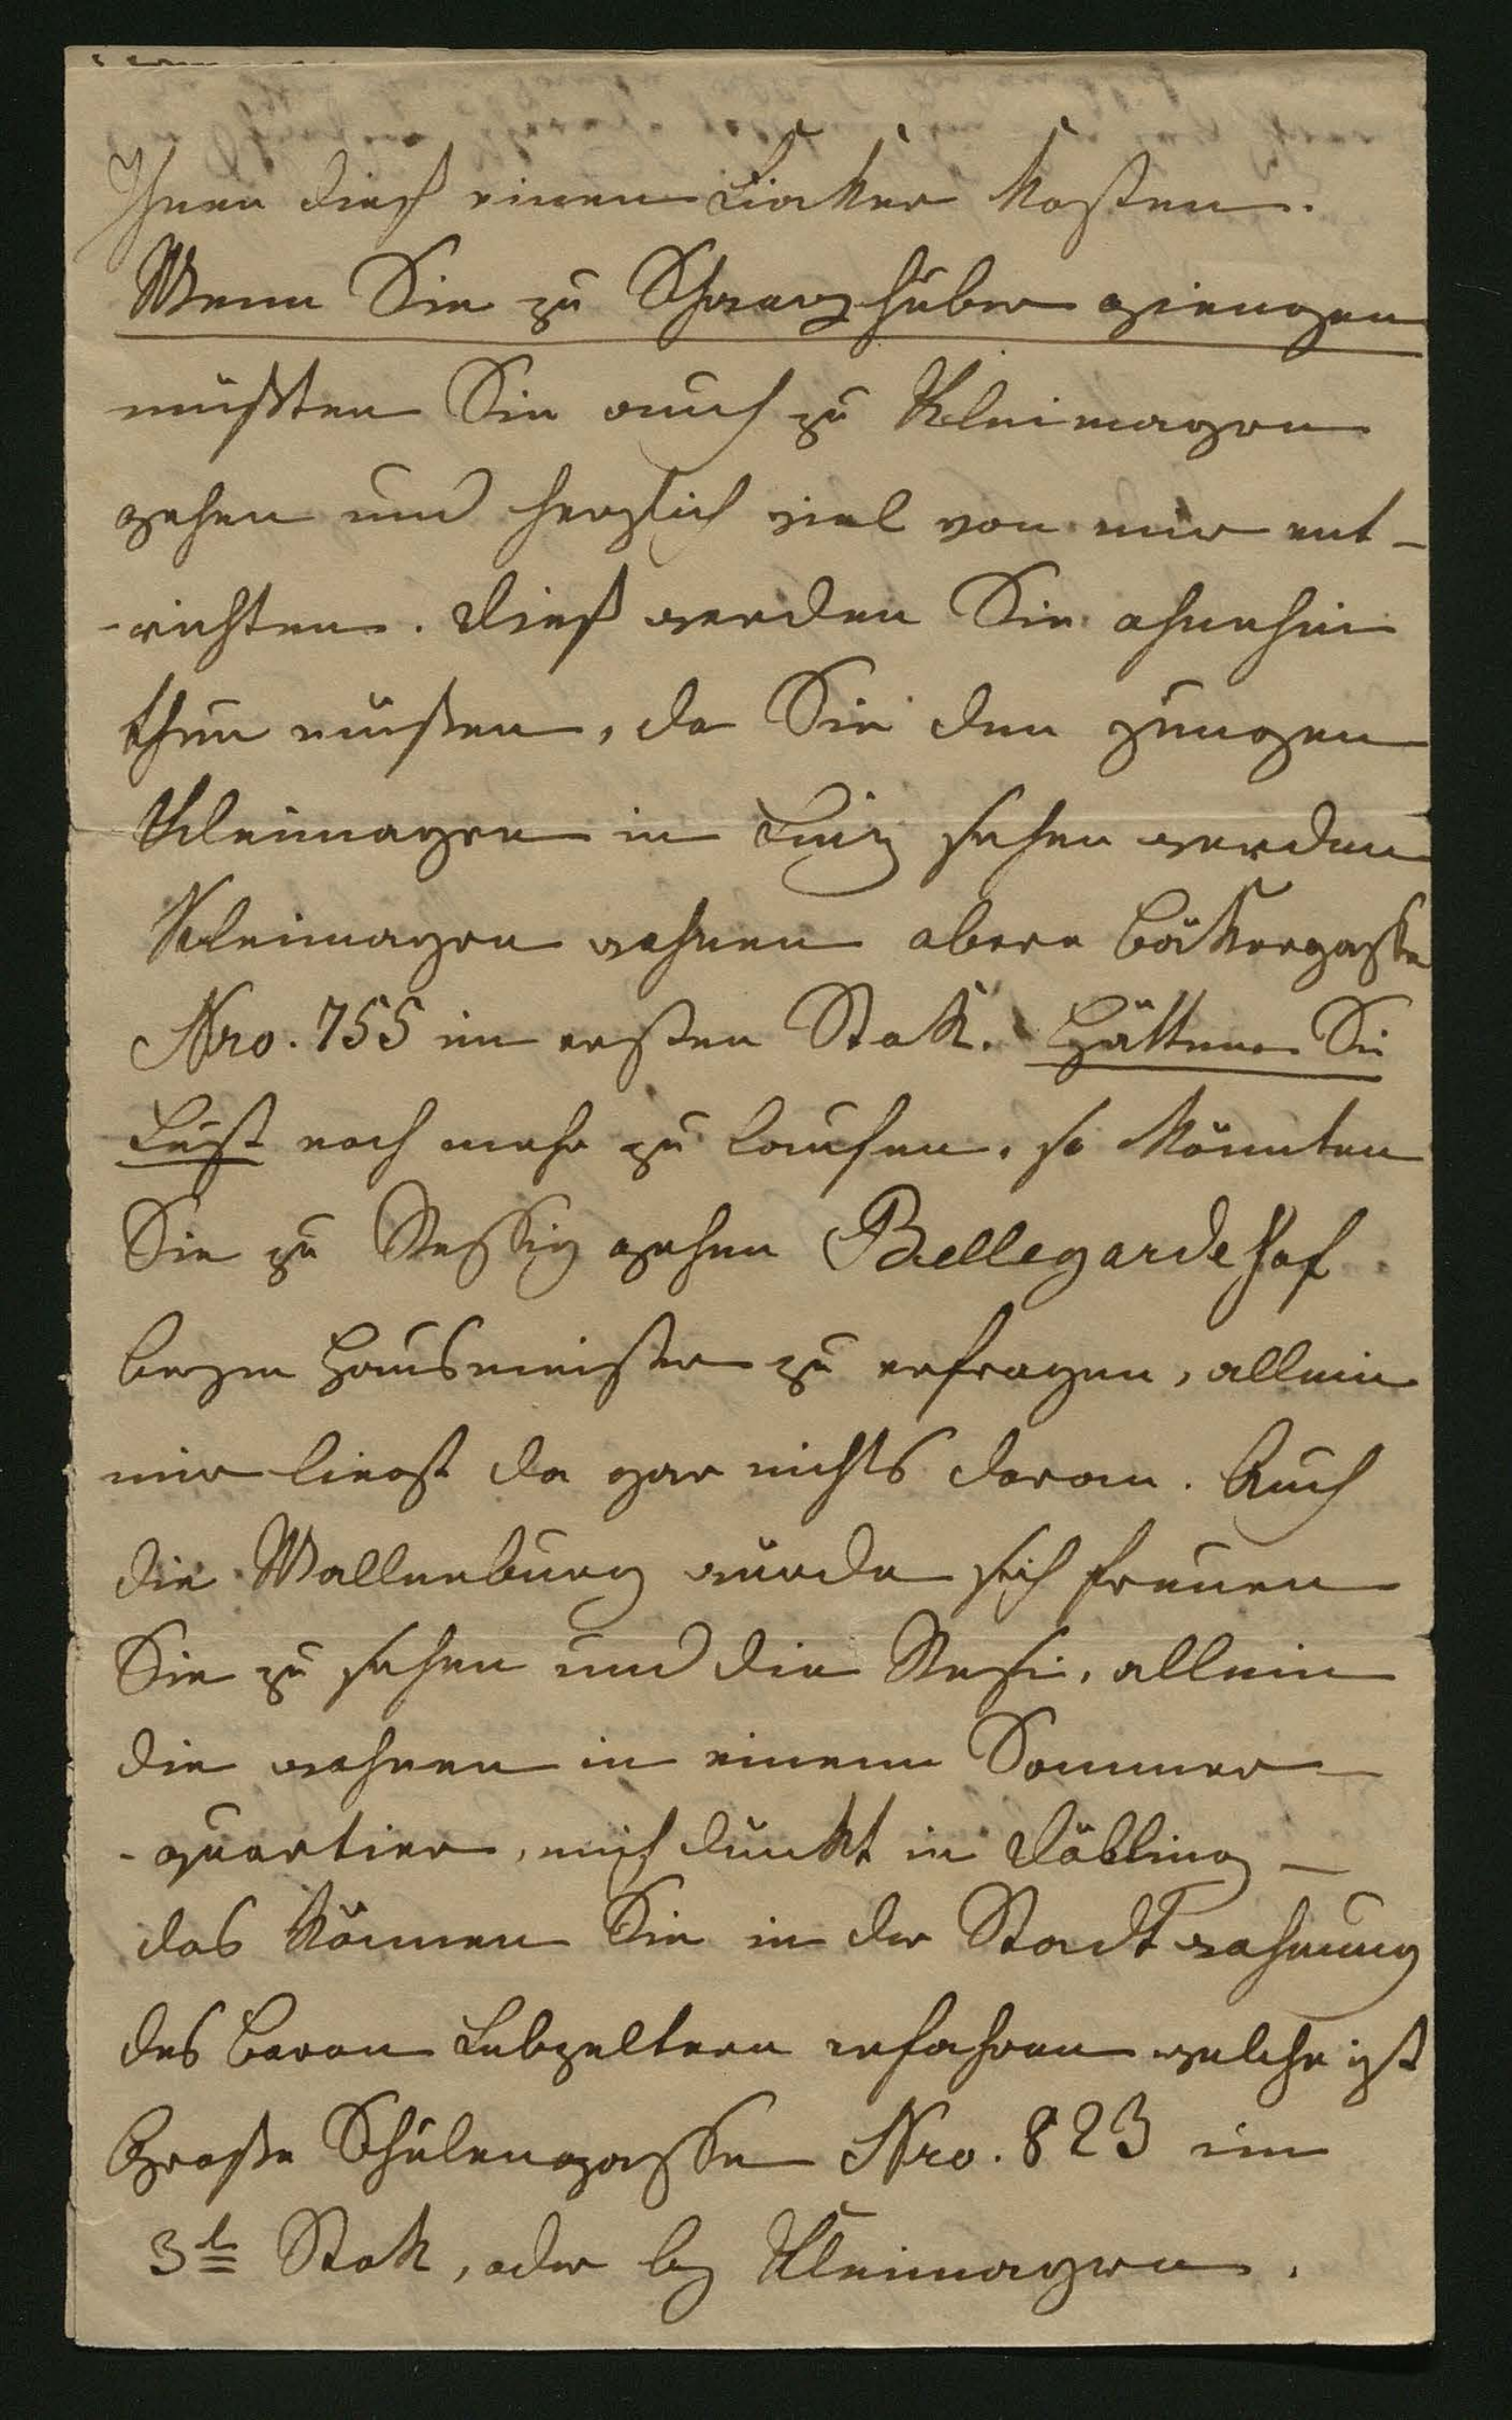 Ihnen dieß einen Fiaker kosten.
Wenn Sie zu Schwarzhuber giengen
müßten Sie auch zu Kleimayrn
gehen und herzlich viel von mir ent-
-richten. Dieß werden Sie ohnehin
thun müßen, da Sie den jungen
Kleimayrn in Linz sehen werden
Kleimayrn wohnen obere Bäkergasse
Nro. 755 im ersten Stok. Hätten Sie
Lust noch mehr zu laufen, so könnten
Sie zu gehen Bellegardehof
beym Hausmeister zu erfragen, allein
mir liegt da gar nichts daran. Auch
die Wallenburg würde sich freuen
Sie zu sehen und die Resi, allein
die wohnen in einem Sommer-
-quartier, mich dünkt in Döbling –
das können Sie in der Stadtwohnung
des Baron Lebzeltern erfahren welche ist
Große Schulengasse Nro. 823 im
3t Stok, oder bey Kleimayrn.